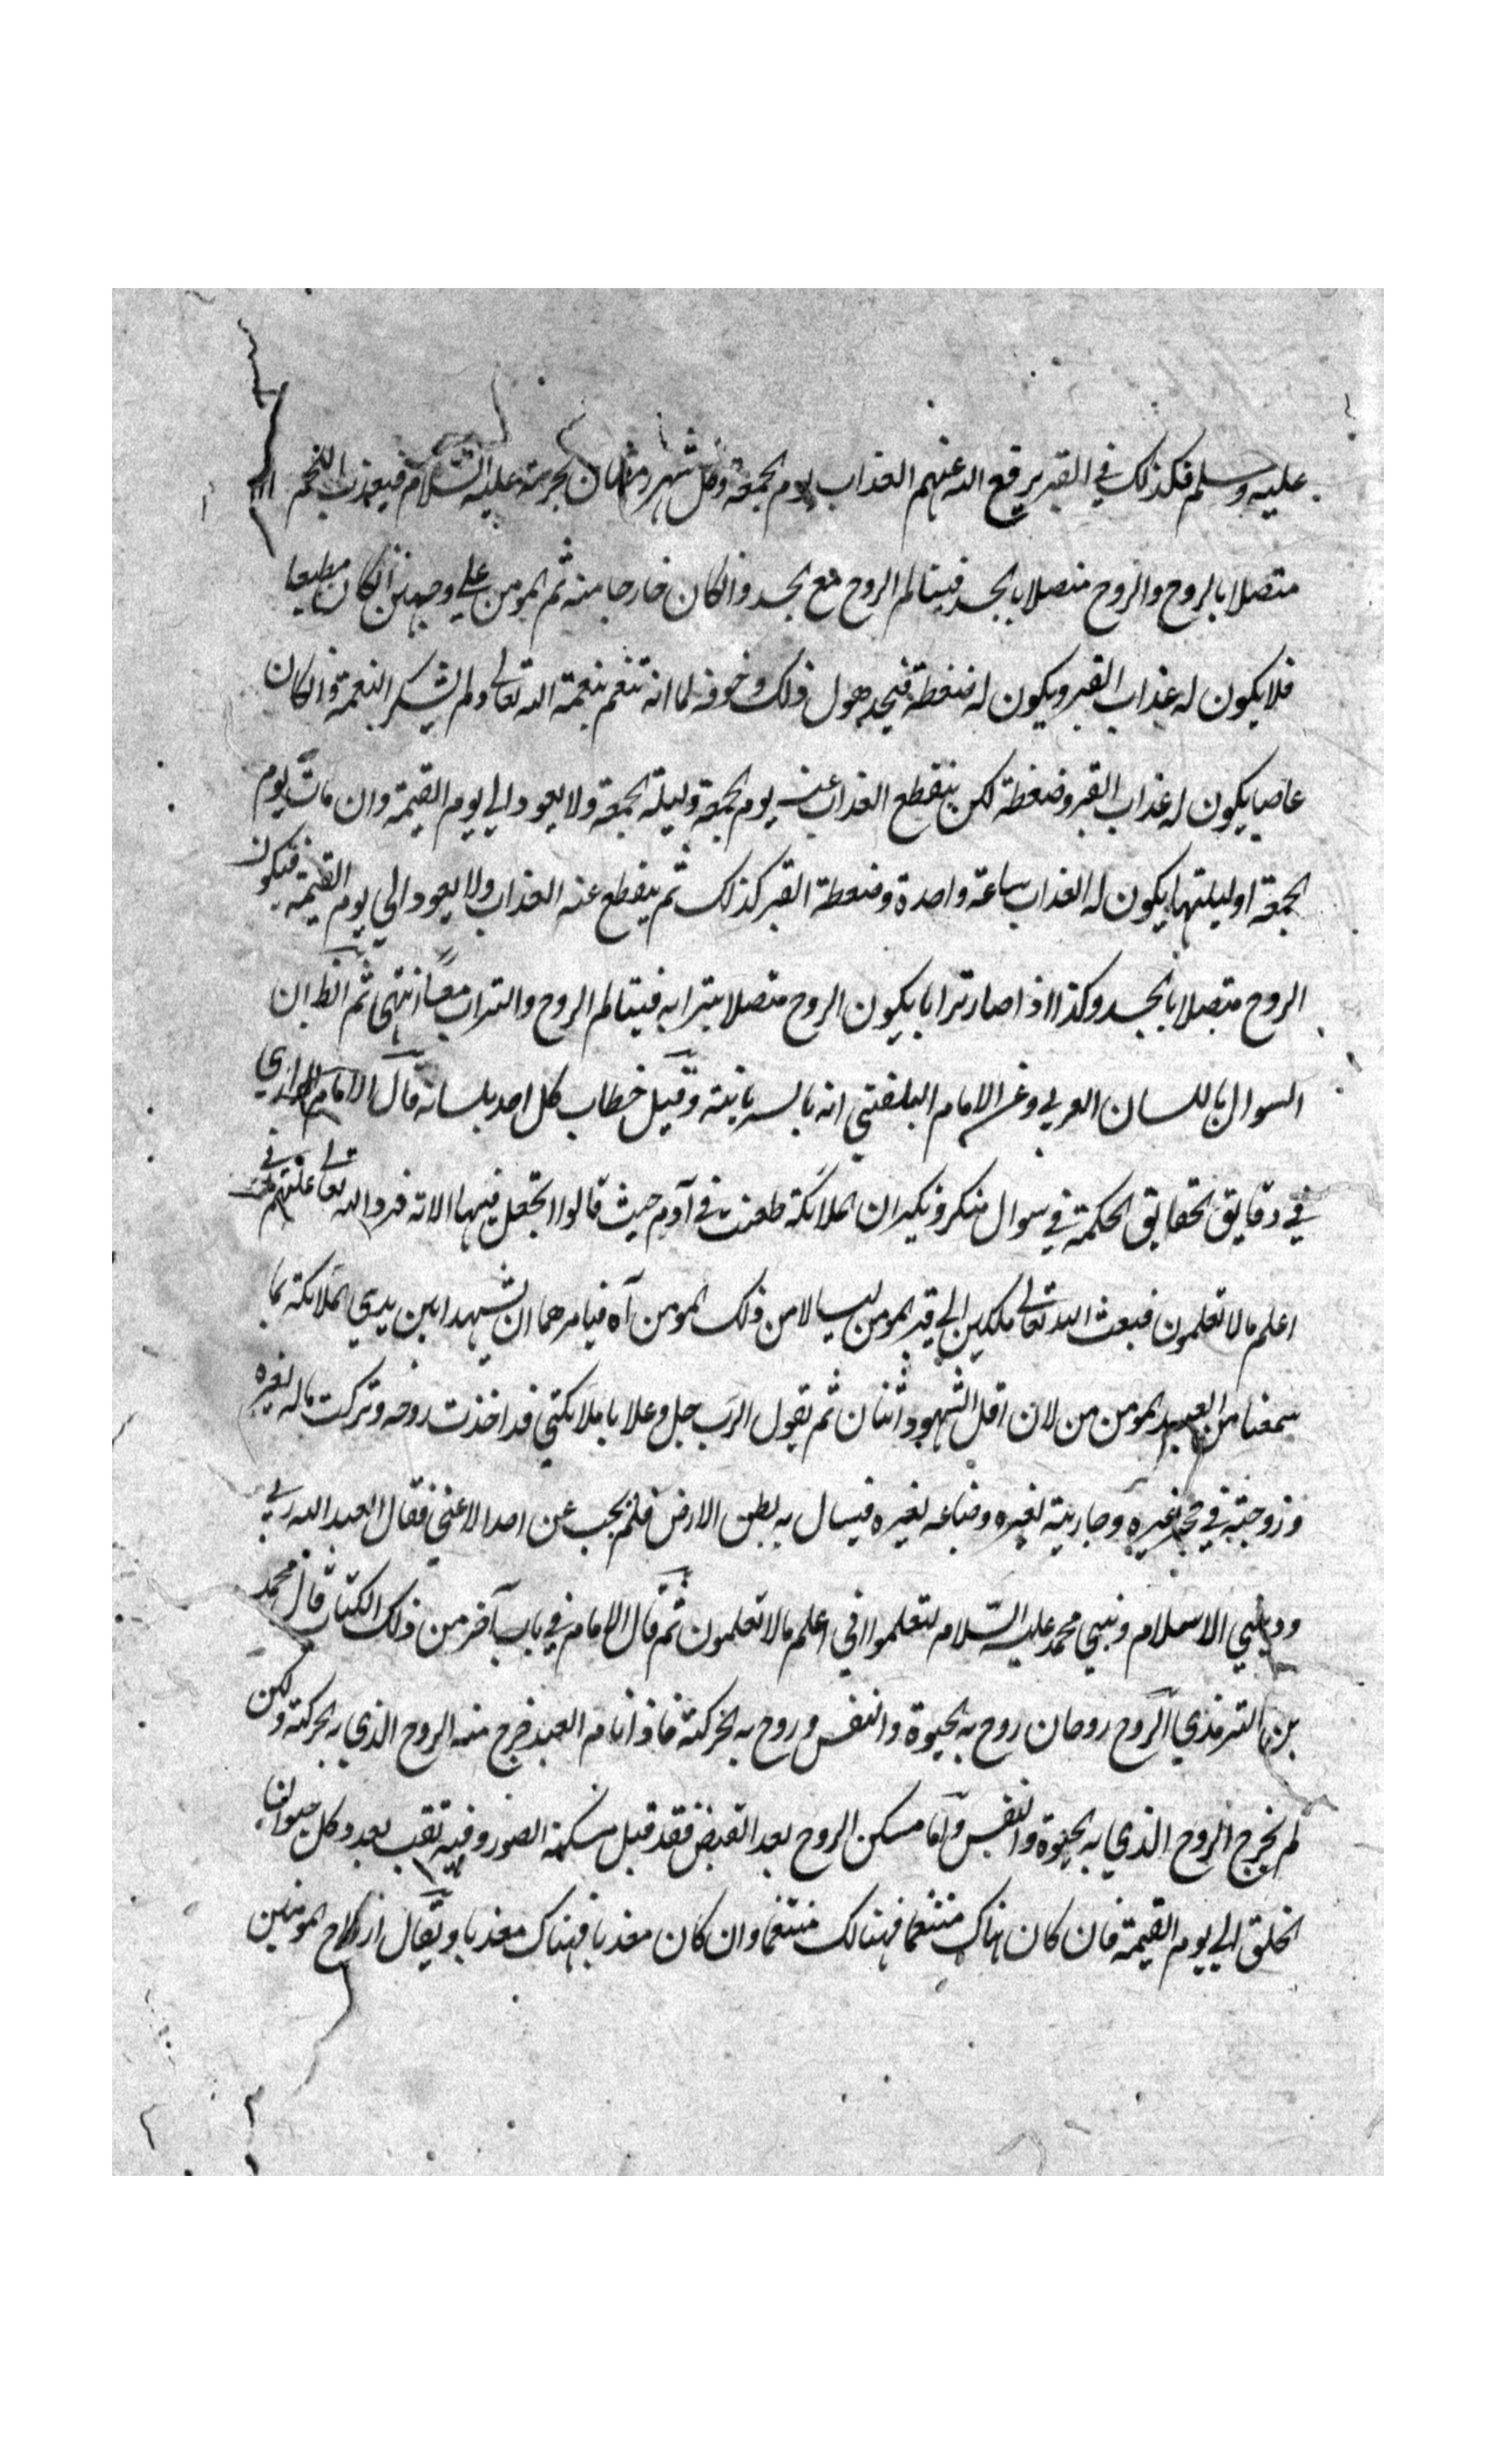 عليه وسلم فكذلك في القبر يرفع الله عنهم العذاب يوم الجمعة وكل شهر رمضان بحرمته عليه السلام فيعذب اللحم
متصلا بالروح والروح متصلا بالجسد فيتالم الروح مع الجسد وانكان خارجا منه ثم المومن علي وجهين انكان مطيعا
فلا يكون له عذاب القبر ويكون له ضغطة فيجد هول ذلك وخوفه لما انه تنعم بنعمة الله تعالى ولم يشكر النعمة وانكان
عاصيا يكون له عذاب القبر وضغطة لكن ينقطع العذاب عنه يوم الجمعة وليلة الجمعة ولا يعود الي يوم القيمة وان مات يوم
الجمعة او ليلتها يكون له العذاب ساعة واحدة وضغطة القبر كذلك ثم ينقطع عنه العذاب ولا يعود الي يوم القيمة فيكون
الروح متصلا بالجسد وكذا اذا صار ترابا يكون الروح متصلا بترابه فيتالم الروح والتراب معا انتهى ثم انظ ان
السوال باللسان العربي وعن الامام البلقيني انه بالسريانية وقيل خطاب كل احد بلسانه قال الامام الرازي
في دقايق الحقايق الحكمة في سوال منكر ونكير ان الملائكة طعنت في آدم حيث قالوا اتجعل فيها الاية فرد الله تعالى عليهم في
اعلم ما لا تعلمون فبعث الله تعالى ملكين الي قبر المومن ليسالا من ذلك المومن آه فيامرهما ان يشهدا بين يدي الملائكة بما
سمعنا من العبد المومن من لان اقل الشهود اثنان ثم يقول الرب جل وعلا يا ملائكتي قد اخذت روحه وتركت ماله لغيره
وزوجته في حجر غيره وجاريته لغيره وضياعه لغيره فيسال به بطن الارض فلم يجب عن احد الا عني فقال العبد الله ربي
وديني الاسلام ونبيي محمد عليه السلام لتعلموا اني اعلم ما لا تعلمون ثم قال الامام في باب آخر من ذلك الكتاب قال محمد
بن الترمذي الروح روحان روح به الحيوة والنفس وروح به الحركة فاذا نام العبد خرج منه الروح الذي به الحركة ولكن
لم يخرج الروح الذي به الحيوة والنفس واما مسكن الروح بعد القبض فقد قيل مسكنه الصور وفيه ثقب بعدد كل حيوان
الخلق الي يوم القيمة فان كان هناك متنعما فهنالك متنعما وان كان معذبا فهناك معذبا ويقال ارواح المومنين